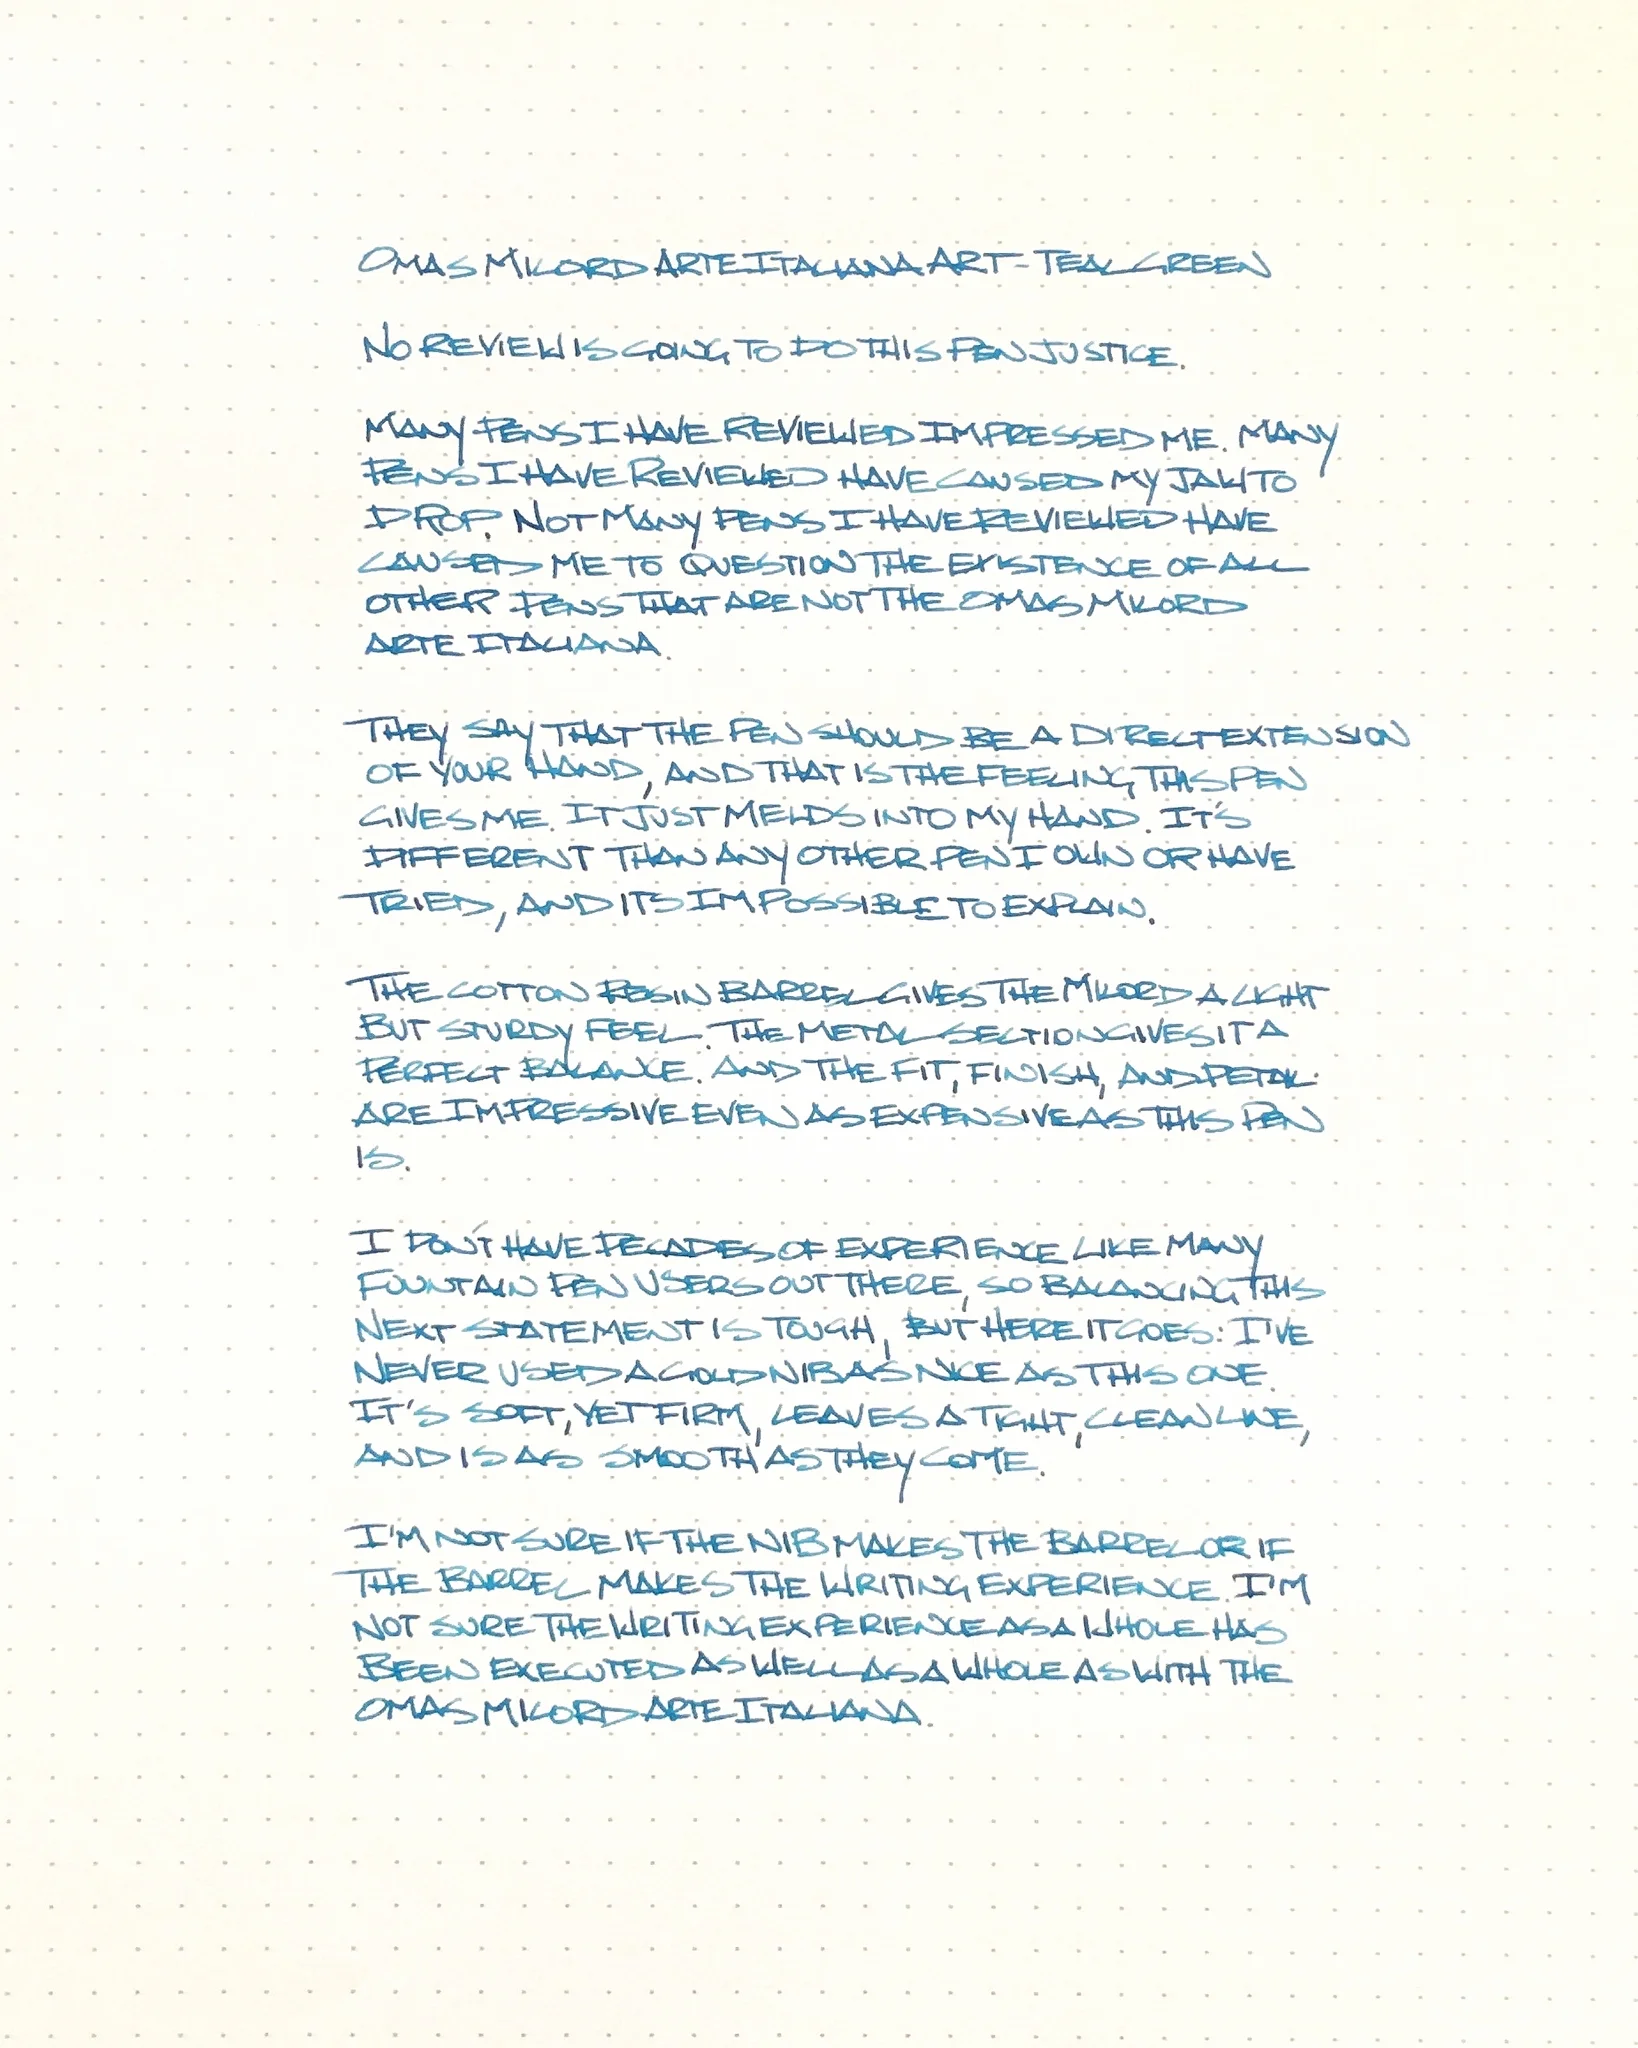 OMAS MILORD ARTE ITALIANA ART - TEAL GREEN
NO REVIEW IS GOING TO DO THIS PEN JUSTICE.
MANY PENS I HAVE REVIEWED IMPRESSED ME. MANY
PENS I HAVE REVIEWED HAVE CAUSED MY JAW TO
DROP. NOT MANY PENS I HAVE REVIEWED HAVE
CAUSED ME TO QUESTION THE EXISTENCE OF ALL
OTHER PENS THAT ARE NOT THE OMAS MILORD
ARTE ITALIANA.
THEY SAY THAT THE PEN SHOULD BE A DIRECT EXTENSION
OF YOUR HAND, AND THAT IS THE FEELING THIS PEN
GIVES ME. IT JUST MELDS INTO MY HAND. IT'S
DIFFERENT THAN ANY OTHER PEN I OWN OR HAVE
TRIED, AND ITS IMPOSSIBLE TO EXPLAIN.
THE COTTON RESIN BARREL GIVES THE MILORD A LIGHT
BUT STURDY FEEL. THE METAL SECTION GIVES IT A
PERFECT BALANCE. AND THE FIT, FINISH, AND DETAIL
ARE IMPRESSIVE EVEN AS EXPENSIVE AS THIS PEN
IS.
I DON'T HAVE DECADES OF EXPERIENCE LIKE MANY
FOUNTAIN PEN USERS OUT THERE, SO BALANCING THIS
NEXT STATEMENT IS TOUGH, BUT HERE IT GOES: I'VE
NEVER USED A GOLD NIB AS NICE AS THIS ONE.
IT'S SOFT, YET FIRM, LEAVES A TIGHT, CLEAN LINE,
AND IS AS SMOOTH AS THEY COME.
I'M NOT SURE IF THE NIB MAKES THE BARREL OR IF
THE BARREL MAKES THE WRITING EXPERIENCE. I'M
NOT SURE THE WRITING EXPERIENCE AS A WHOLE HAS
BEEN EXECUTED AS WELL AS A WHOLE AS WITH THE
OMAS MILORD ARTE ITALIANA.